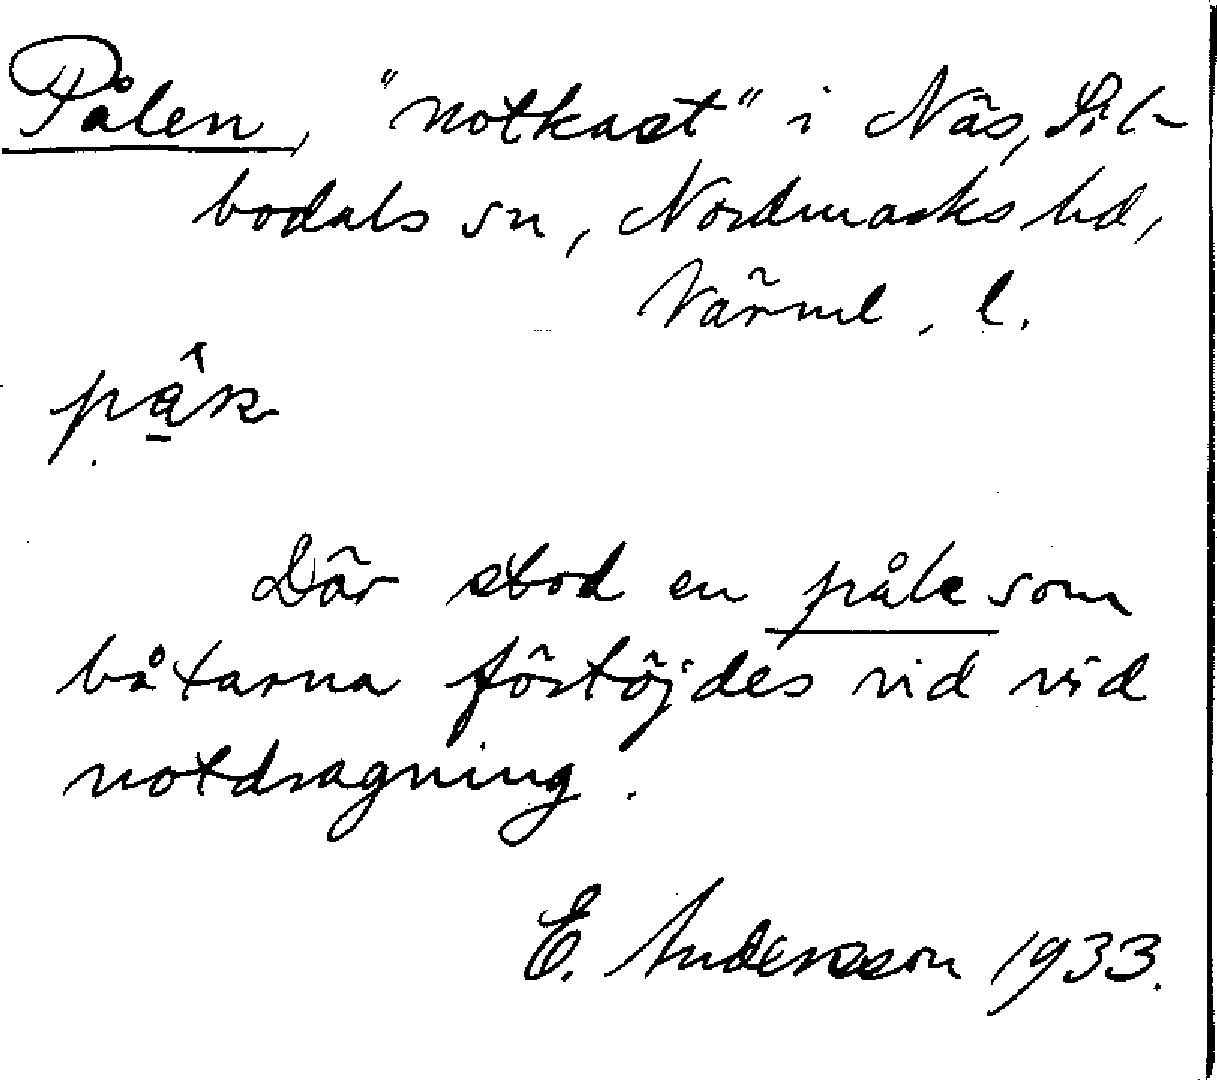 Pålen, "notkast" i Näs, Sil-
bodals sn, Nordmarks hd,
Värml. l.
Där stod en påle som
båtarna förtöjdes vid vid
notdragning.
E. Andersson 1933.